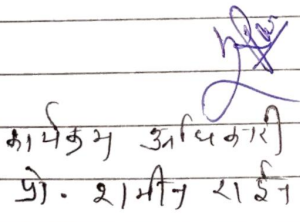 कार्यक्रम अधिकारी
प्रो. शमीन राईन